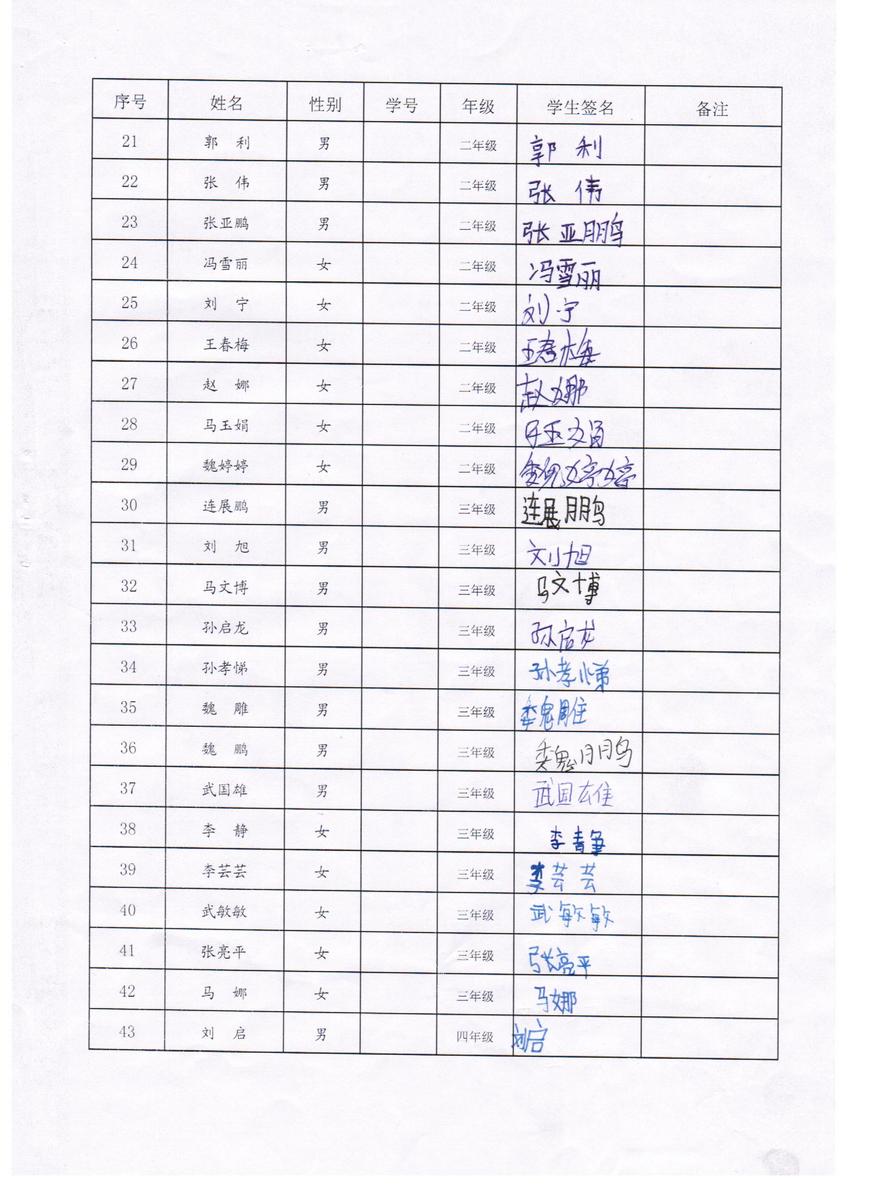 序号 姓名 性别 学号 年级 学生签名 备注
21 郭 利 男 二年级 郭 利
22 张 伟 男 二年级 张 伟
23 张亚鹏 男 二年级 张亚鹏
24 冯雪丽 女 二年级 冯雪丽
25 刘 宁 女 二年级 刘宁
26 王春梅 女 二年级 王春梅
27 赵 娜 女 二年级 赵娜
28 马玉娟 女 二年级 马玉娟
29 魏婷婷 女 二年级 魏婷婷
30 连展鹏 男 三年级 连展鹏
31 刘 旭 男 三年级 刘旭
32 马文博 男 三年级 马文博
33 孙启龙 男 三年级 孙启龙
34 孙孝悌 男 三年级 孙孝悌
35 魏 雕 男 三年级 魏雕
36 魏 鹏 男 三年级 魏鹏
37 武国雄 男 三年级 武国雄
38 李 静 女 三年级 李静
39 李芸芸 女 三年级 李芸芸
40 武敏敏 女 三年级 武敏敏
41 张亮平 女 三年级 张亮平
42 马 娜 女 三年级 马娜
43 刘 启 男 四年级 刘启